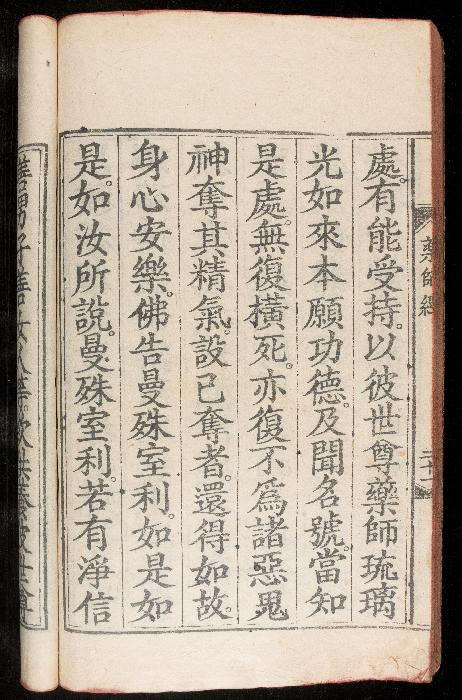 藥師經
二十一
處。有能受持。以彼世尊藥師琉璃
光如來本願功德。及聞名號。當知
是處。無復橫死。亦復不為諸惡鬼
神奪其精氣。設已奪者。還得如故。
身心安樂。佛告曼殊室利。如是如
是。如汝所說。曼殊室利。若有淨信